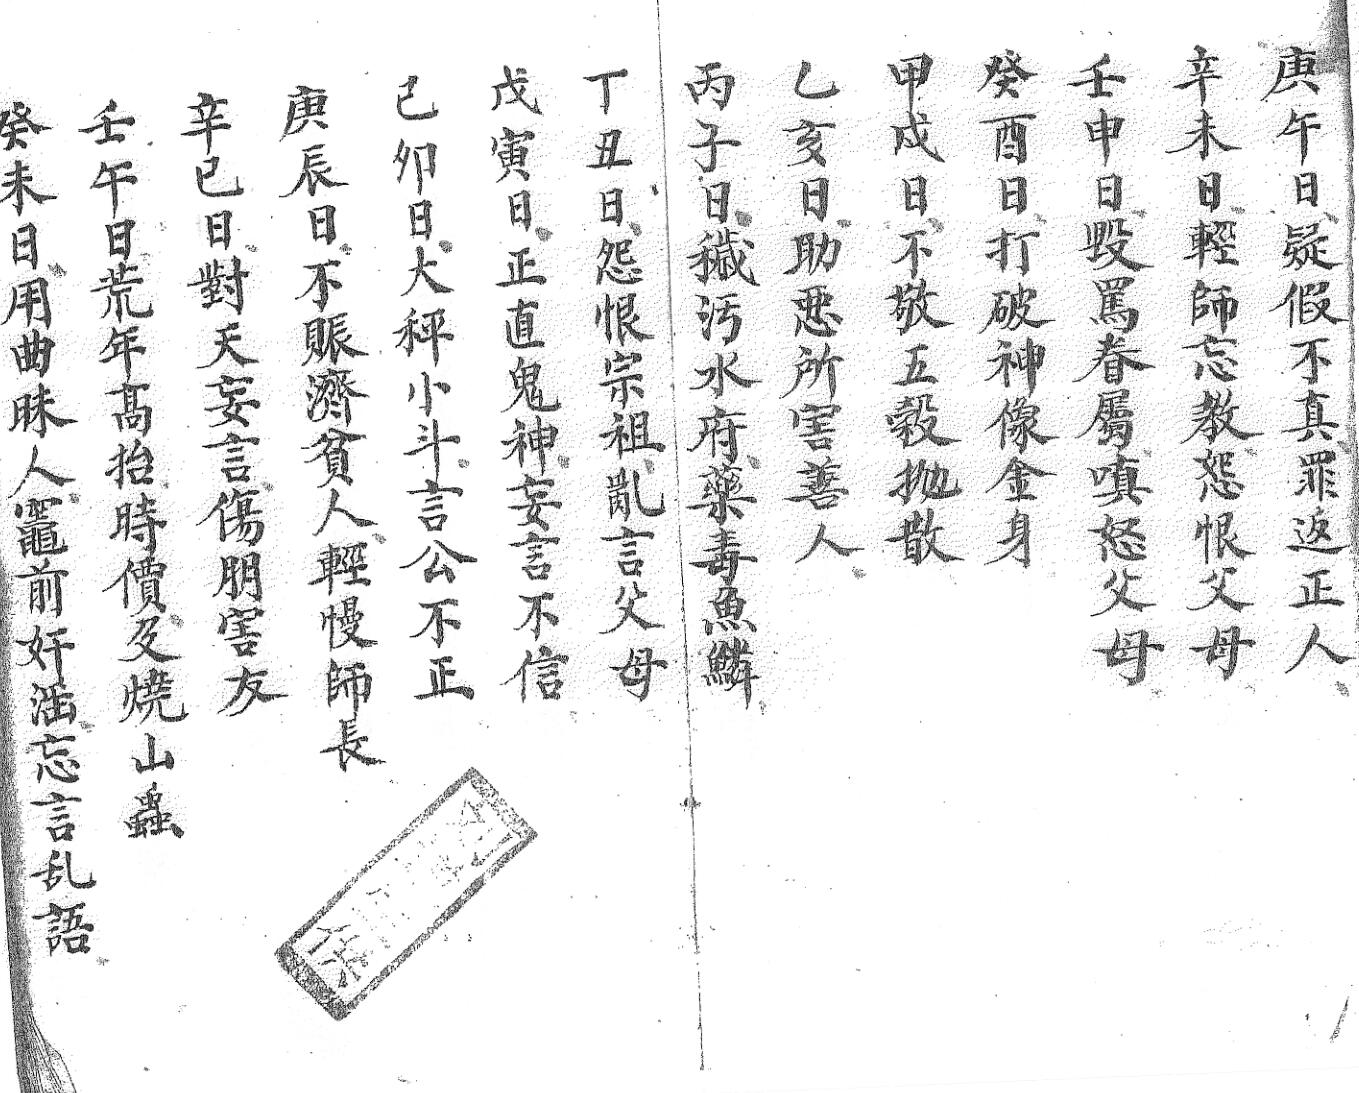 庚午日疑假不真罪返正人
辛未日輕師忘教怨恨父母
壬申日毀罵眷屬嗔怒父母
癸酉日打破神像金身
甲戍日不敬五穀拋散
乙亥日助惡所害善人
丙子日穢污水府藥毒魚鱗
丁丑日怨恨宗祖亂言父母
戊寅日正直鬼神妄言不信
己卯日大秤小斗言公不正
庚辰日不賑濟貧人輕慢師長
辛巳日對天妄言傷朋害友
壬午日荒年高抬時價及燒山蟲
癸未日用曲昧人竈前奸滛忘言乱語